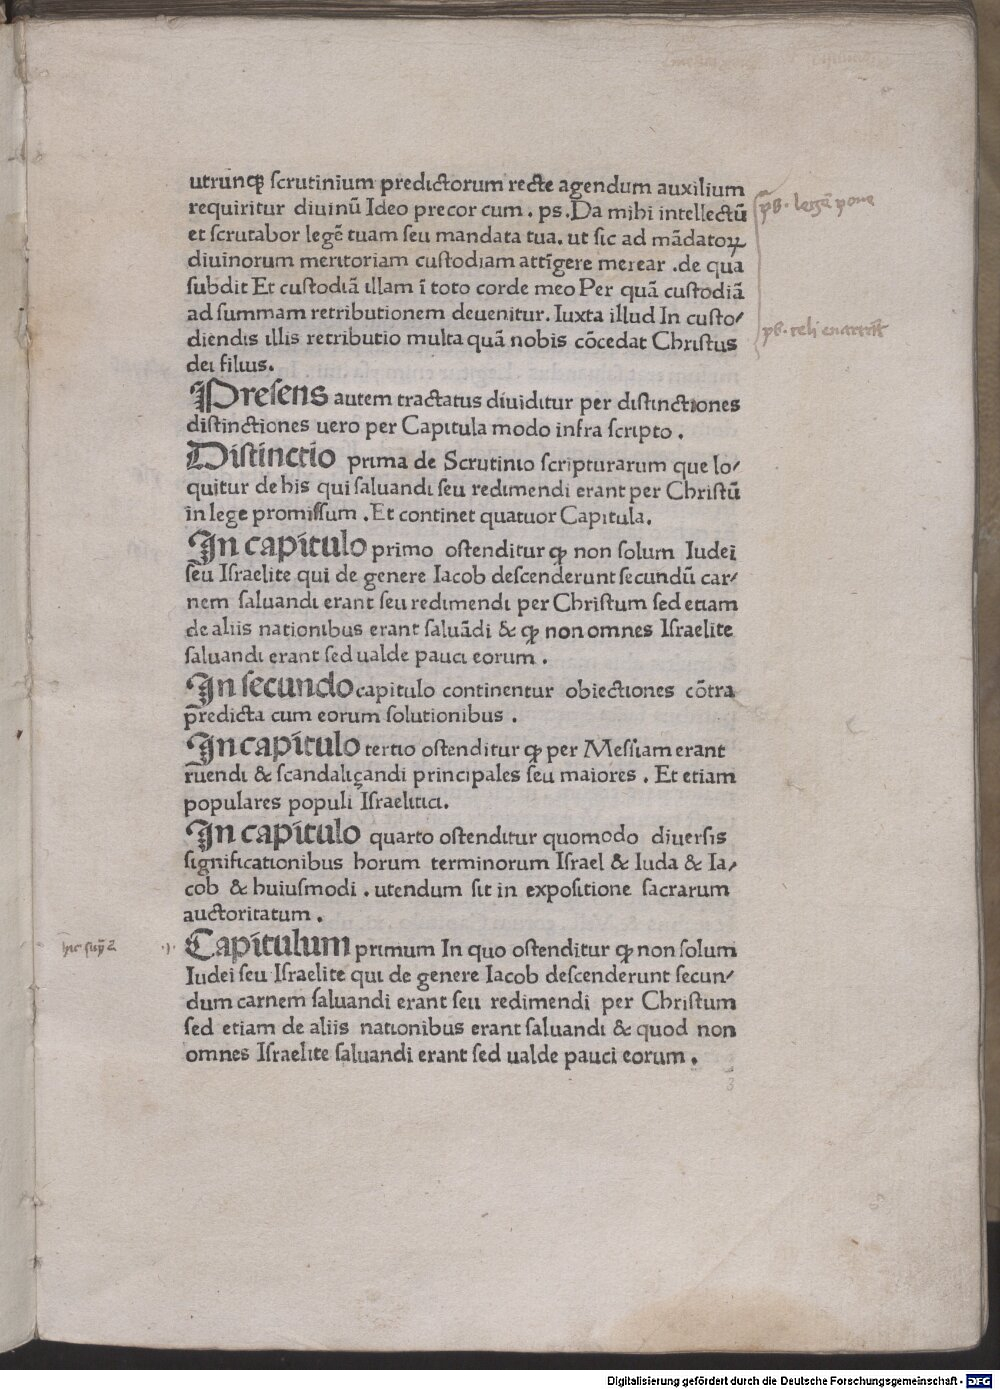 utrunqꝫ scrutinium predictorum recte agendum auxilium
requiritur diuinũ Ideo precor cum . ps . Da mihi intellectũ
et scrutabor legẽ tuam seu mandata tua. ut sic ad mãdatoꝝ
diuinorum meritoriam custodiam attĩgere merear .de qua
subdit Et custodiã illam ĩ toto corde meo Per quã custodiã
ad summam retributionem deuenitur. Iuxta illud In custo/
diendis illis retributio multa quã nobis cõcedat Christus
dei filius.
Presens autem tractatus diuiditur per distinctiones
distinctiones uero per Capitula modo infra scripto .
Distinctio prima de Scrutinio scripturarum que lo/
quitur de his qui saluandi seu redimendi erant per Christũ
in lege promissum . Et continet quatuor Capitula.
In capitulo primo ostenditur ꝙ non solum Iudei
seu Israelite qui de genere Iacob descenderunt secundũ car/
nem saluandi erant seu redimendi per Christum sed etiam
de aliis nationibus erant saluãdi & ꝙ non omnes Israelite
saluandi erant sed ualde pauci eorum .
In secundo capitulo continentur obiectiones cõtra
p̃redicta cum eorum solutionibus .
In capitulo tertio ostenditur ꝙ per Messiam erant
ruendi & scandaliçandi principales seu maiores . Et etiam
populares populi Israelitici.
In capitulo quarto ostenditur quomodo diuersis
significationibus horum terminorum Israel & Iuda & Ia/
cob & huiusmodi . utendum sit in expositione sacrarum
auctoritatum .
Capitulum primum In quo ostenditur ꝙ non solum
Iudei seu Israelite qui de genere Iacob descenderunt secun/
dum carnem saluandi erant seu redimendi per Christum
sed etiam de aliis nationibus erant saluandi & quod non
omnes Israelite saluandi erant sed ualde pauci eorum .
3
Digitalisierung gefördert durch die Deutsche Forschungsgemeinschaft - DFG